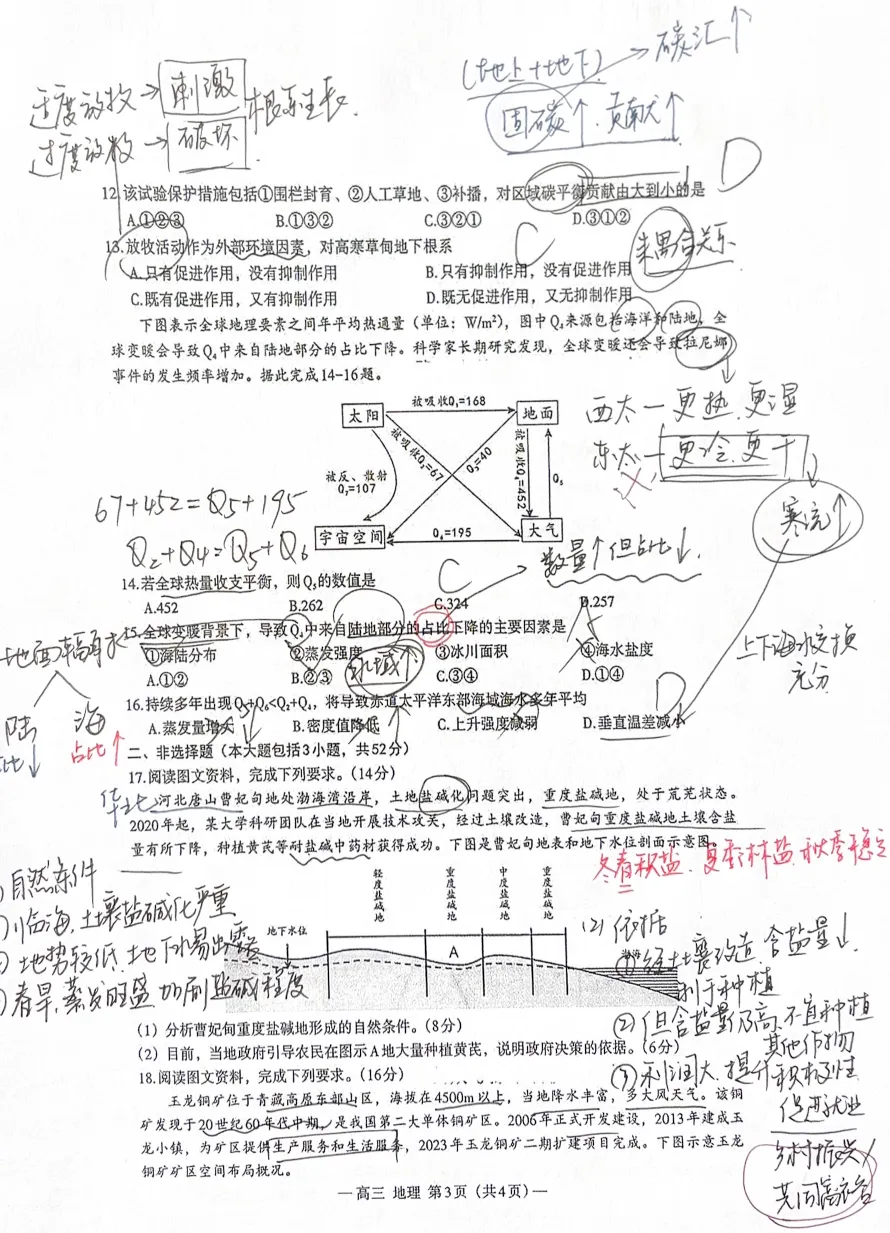 (地上+地下)→碳汇↑
适度放牧→刺激
根系生长.
过度放牧→破坏
固碳↑.贡献大↑
D
12.该试验保护措施包括①围栏封育、②人工草地、③补播，对区域碳平衡贡献由大到小的是
A.①②③ B.①③② C.③②① D.③①②
13.放牧活动作为外部环境因素，对高寒草甸地下根系
C
A.只有促进作用，没有抑制作用 B.只有抑制作用，没有促进作用
C.既有促进作用，又有抑制作用 D.既无促进作用，又无抑制作用
下图表示全球地理要素之间年平均热通量（单位：W/m²），图中Q₄来源包括海洋和陆地，全
球变暖会导致Q₄中来自陆地部分的占比下降。科学家长期研究发现，全球变暖还会导致拉尼娜
事件的发生频率增加。据此完成14-16题。
西太—更热.更湿
东太—更冷.更干
寒流↑
太阳 被吸收Q₁=168 地面
被吸收Q₂=67
Q₃=40
被吸收Q₄=452
Q₅
被反、散射
Q₇=107
宇宙空间 Q₆=195 大气
67+452=Q5+195
Q2+Q4=Q5+Q6
数量↑但占比↓.
14.若全球热量收支平衡，则Q₅的数值是
C
A.452 B.262 C.324 D.257
15.全球变暖背景下，导致Q₄中来自陆地部分的占比下降的主要因素是
A
①海陆分布 ②蒸发强度 ③冰川面积 ④海水盐度
A.①② B.②③ C.③④ D.①④
地面辐射
陆 海
占比↓ 占比↑
上下海水交换
充分
16.持续多年出现Q₅+Q₆<Q₂+Q₄，将导致赤道太平洋东部海域海水多年平均
D
A.蒸发量增大 B.密度值降低 C.上升强度减弱 D.垂直温差减小
二、非选择题（本大题包括3小题，共52分）
17.阅读图文资料，完成下列要求。（14分）
华北
河北唐山曹妃甸地处渤海湾沿岸，土地盐碱化问题突出，重度盐碱地，处于荒芜状态。
2020年起，某大学科研团队在当地开展技术攻关，经过土壤改造，曹妃甸重度盐碱地土壤含盐
量有所下降，种植黄芪等耐盐碱中药材获得成功。下图是曹妃甸地表和地下水位剖面示意图。
冬春积盐.
秋季稳定
轻度盐碱地 重度盐碱地 中度盐碱地 重度盐碱地
地下水位 A 渤海
自然条件
临海,土壤盐碱化严重
地势较低,地下水易出露
春旱,蒸发旺盛 加剧盐碱程度
(2) 依据
①经土壤改造,含盐量↓.
利于种植
②但含盐量仍高,不宜种植
其他作物
③利润大.提升积极性
促进就业
乡村振兴
共同富裕
（1）分析曹妃甸重度盐碱地形成的自然条件。（8分）
（2）目前，当地政府引导农民在图示A地大量种植黄芪，说明政府决策的依据。（6分）
18.阅读图文资料，完成下列要求。（16分）
玉龙铜矿位于青藏高原东部山区，海拔在4500m以上，当地降水丰富，多大风天气。该铜
矿发现于20世纪60年代中期，是我国第二大单体铜矿区。2006年正式开发建设，2013年建成玉
龙小镇，为矿区提供生产服务和生活服务，2023年玉龙铜矿二期扩建项目完成。下图示意玉龙
铜矿矿区空间布局概况。
—高三 地理 第3页（共4页）—